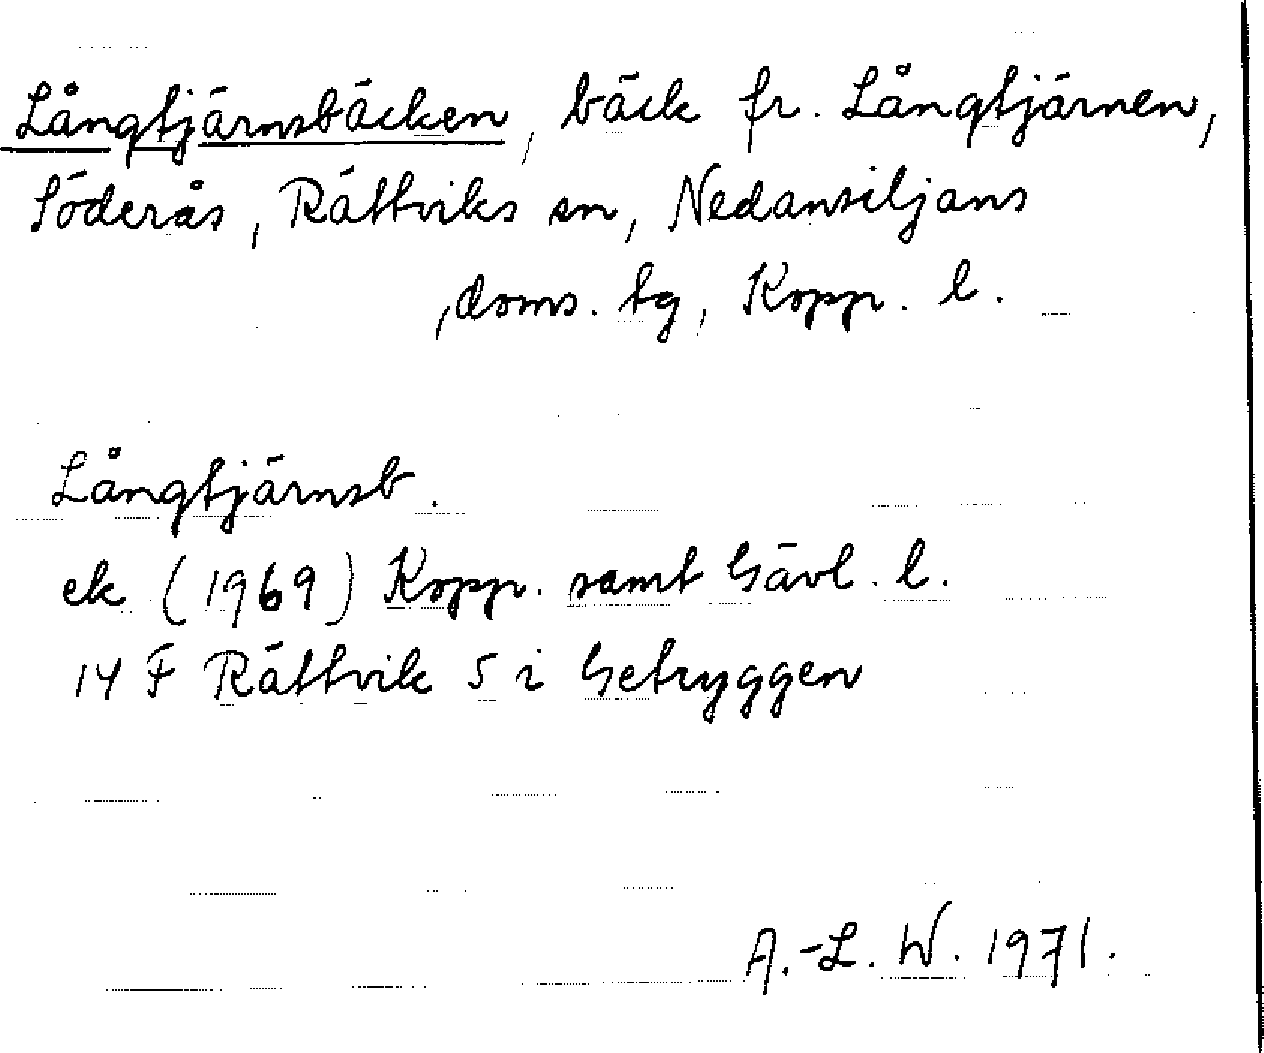 Långtjärnsbäcken, bäck fr. Långtjärnen,
Söderås, Rättviks sn, Nedansiljans
doms. tg, Kopp. l.
Långtjärnsb.
ek (1969) Kopp. samt Gävl. l.
14 F Rättvik 5 i Getryggen
A.-L. W. 1971.